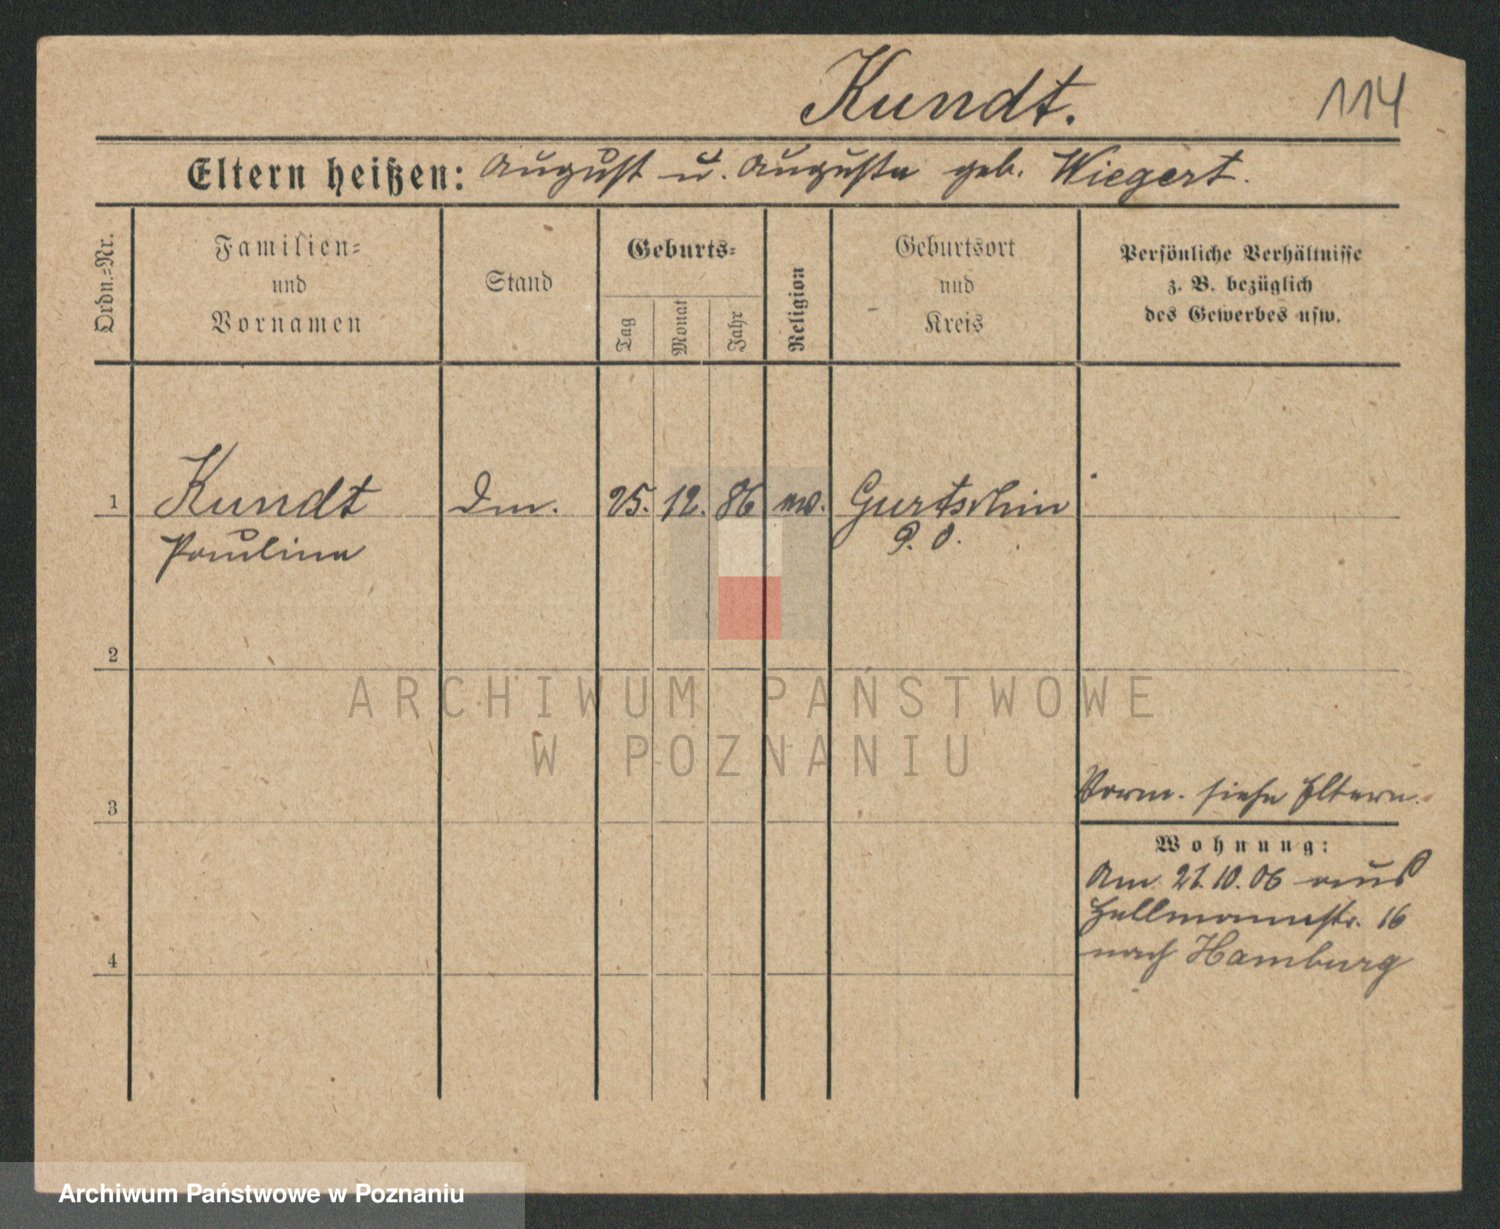 Kundt.
114
Eltern heißen: August u. Auguste geb. Wiegert.
Ordn.-Nr.
Familien-
und
Vornamen
Stand
Geburts-
Tag
Monat
Jahr
Religion
Geburtsort
und
Kreis
Persönliche Verhältnisse
z. B. bezüglich
des Gewerbes usw.
1
Kundt
25. 12. 86
Gurtschin
P. O.
Pauline
2
ARCHIWUM PAŃSTWOWE
W POZNANIU
3
Verm. siehe Eltern.
Wohnung:
Am 21.10.06 aus
str. 16
nach Hamburg
4
Archiwum Państwowe w Poznaniu